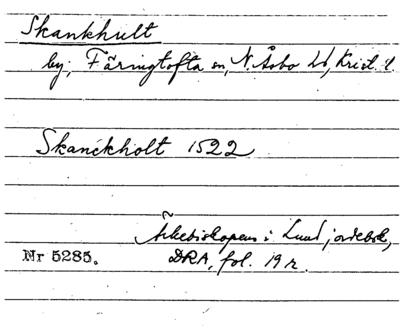 Skankhult
by, Färingtofta sn, N. Åsbo hd, Krist. l.
Skanckholt 1522
Ärkebiskopens i Lund jordebok,
Nr 5285. DRA, fol. 19 r.